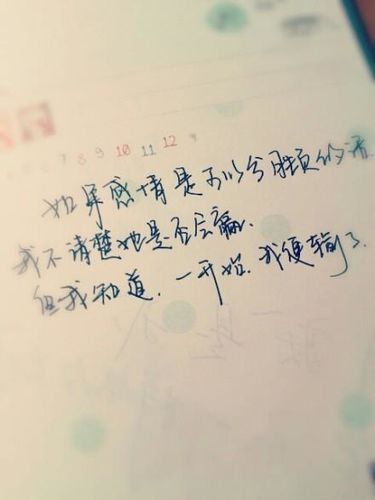 7 8 9 10 11 12
如果感情是可以分胜负的话
我不清楚她是否会赢.
但我知道.一开始.我便输了.